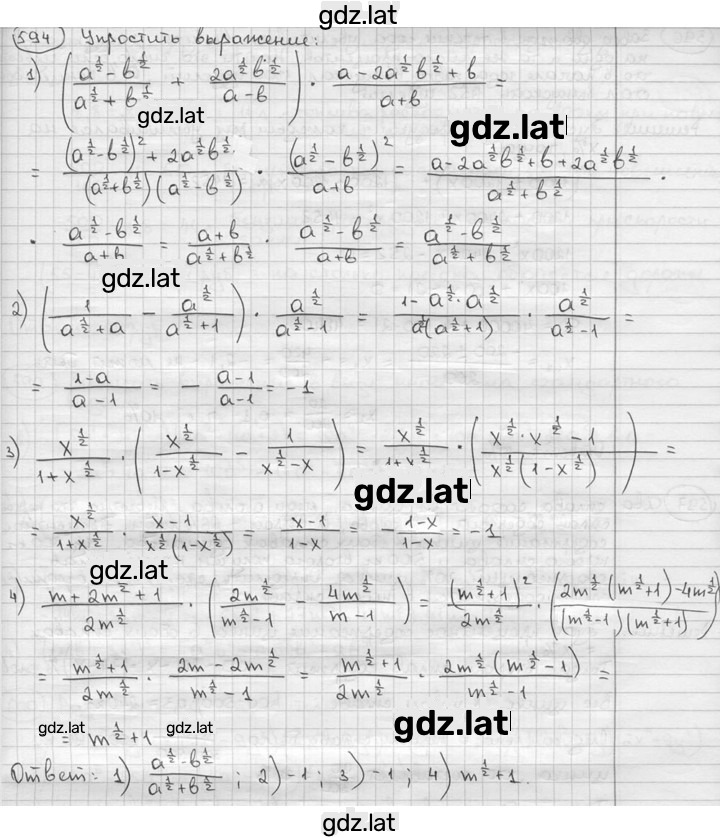 gdz.lat
594 Упростить выражение:
1) ( (a^{1/2} - b^{1/2})/(a^{1/2} + b^{1/2}) + (2a^{1/2}b^{1/2})/(a - b) ) · (a - 2a^{1/2}b^{1/2} + b)/(a + b) =
gdz.lat gdz.lat
= ((a^{1/2} - b^{1/2})^2 + 2a^{1/2}b^{1/2})/((a^{1/2} + b^{1/2})(a^{1/2} - b^{1/2})) · (a^{1/2} - b^{1/2})^2/(a + b) = (a - 2a^{1/2}b^{1/2} + b + 2a^{1/2}b^{1/2})/(a^{1/2} + b^{1/2}) ·
· (a^{1/2} - b^{1/2})/(a + b) = (a + b)/(a^{1/2} + b^{1/2}) · (a^{1/2} - b^{1/2})/(a + b) = (a^{1/2} - b^{1/2})/(a^{1/2} + b^{1/2})
gdz.lat
2) ( 1/(a^{1/2} + a) - a^{1/2}/(a^{1/2} + 1) ) · a^{1/2}/(a^{1/2} - 1) = (1 - a^{1/2} · a^{1/2})/(a^{1/2}(a^{1/2} + 1)) · a^{1/2}/(a^{1/2} - 1) =
= (1 - a)/(a - 1) = - (a - 1)/(a - 1) = -1
3) x^{1/2}/(1 + x^{1/2}) · ( x^{1/2}/(1 - x^{1/2}) - 1/(x^{1/2} - x) ) = x^{1/2}/(1 + x^{1/2}) · ( (x^{1/2} · x^{1/2} - 1)/(x^{1/2}(1 - x^{1/2})) ) =
gdz.lat
= x^{1/2}/(1 + x^{1/2}) · (x - 1)/(x^{1/2}(1 - x^{1/2})) = (x - 1)/(1 - x) = - (1 - x)/(1 - x) = -1
gdz.lat
4) (m + 2m^{1/2} + 1)/(2m^{1/2}) · ( 2m^{1/2}/(m^{1/2} - 1) - 4m^{1/2}/(m - 1) ) = (m^{1/2} + 1)^2/(2m^{1/2}) · ( (2m^{1/2}(m^{1/2} + 1) - 4m^{1/2})/((m^{1/2} - 1)(m^{1/2} + 1)) )
= (m^{1/2} + 1)/(2m^{1/2}) · (2m - 2m^{1/2})/(m^{1/2} - 1) = (m^{1/2} + 1)/(2m^{1/2}) · (2m^{1/2}(m^{1/2} - 1))/(m^{1/2} - 1) =
gdz.lat gdz.lat gdz.lat
= m^{1/2} + 1
Ответ: 1) (a^{1/2} - b^{1/2})/(a^{1/2} + b^{1/2}); 2) -1; 3) -1; 4) m^{1/2} + 1.
gdz.lat